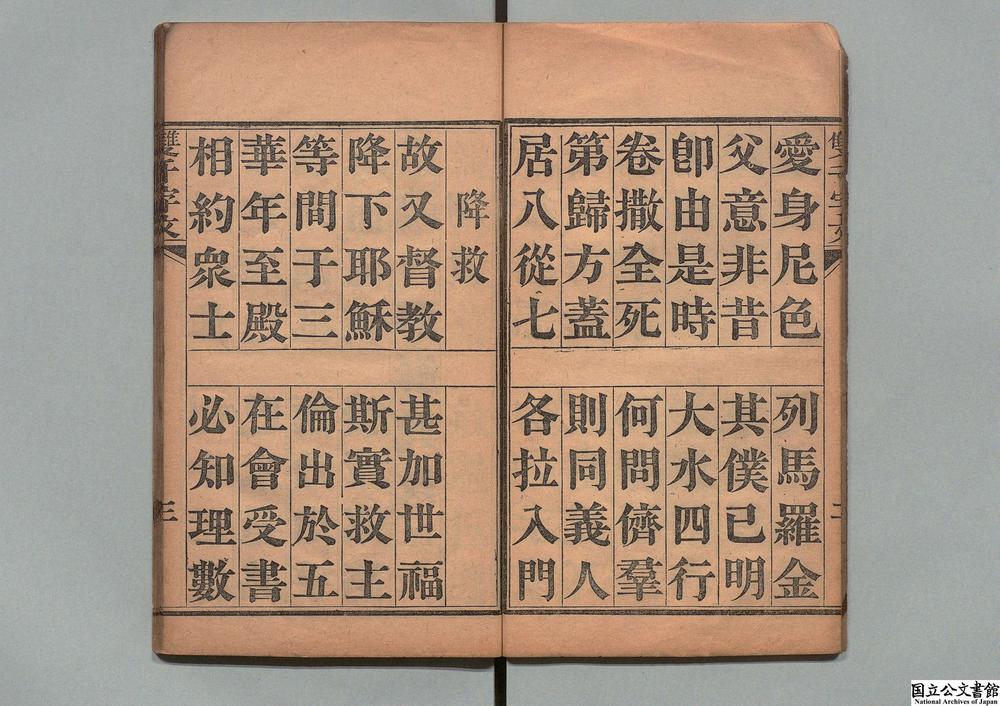 愛身尼色 列馬羅金
父意非昔 其僕已明
卽由是時 大水四行
卷撒全死 何問儕羣
第歸方蓋 則同義人
居八從七 各拉入門
二
降救
故又督教 甚加世福
降下耶穌 斯實救主
等間于三 倫出於五
華年至殿 在會受書
相約衆士 必知理數
雙千字文
三
国立公文書館
National Archives of Japan